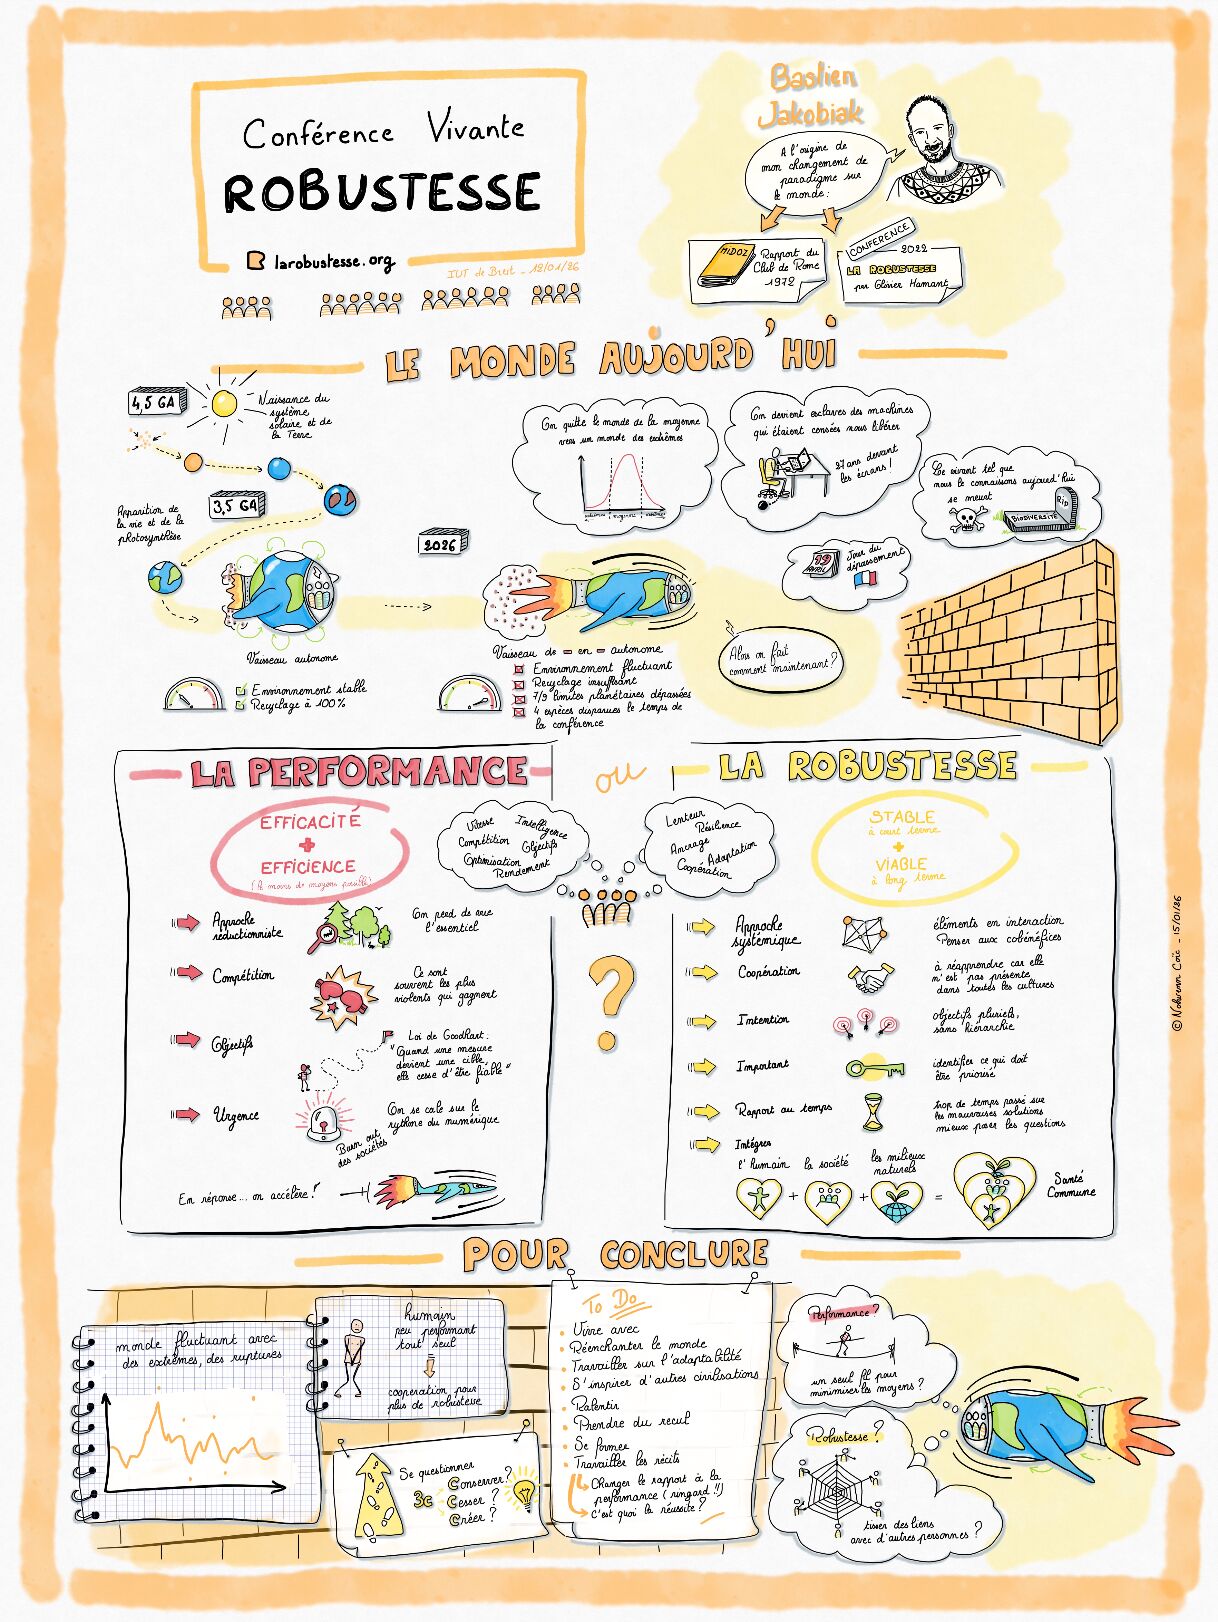 Conférence Vivante
ROBUSTESSE
larobustesse.org
IUT de Brest _ 12/01/26
Bastien
Jakobiak
A l'origine de
mon changement de
paradigme sur
le monde :
Rapport du
Club de Rome
1972
CONFERENCE
2022
LA ROBUSTESSE
par Olivier Hamant
LE MONDE AUJOURD'HUI
4,5 GA
Naissance du
système
solaire et de
la Terre
Apparition de
la vie et de la
photosynthèse
3,5 GA
Vaisseau autonome
Environnement stable
Recyclage à 100%
2026
On quitte le monde de la moyenne
vers un monde des extrêmes
On devient esclaves des machines
qui étaient censées nous libérer
27 ans devant
les écrans !
Le vivant tel que
nous le connaissons aujourd'hui
se meurt
RIP
BIODIVERSITÉ
19
AVRIL
Jour du
dépassement
Vaisseau de - en - autonome
Environnement fluctuant
Recyclage insuffisant
7/9 limites planétaires dépassées
4 espèces disparues le temps de
la conférence
Alors on fait
comment maintenant ?
LA PERFORMANCE
ou
LA ROBUSTESSE
EFFICACITÉ
+
EFFICIENCE
(le moins de moyens possible)
Vitesse
Intelligence
Compétition
Objectifs
Optimisation
Rendement
Lenteur
Résilience
Ancrage
Adaptation
Coopération
STABLE
à court terme
+
VIABLE
à long terme
Approche
réductionniste
On perd de vue
l'essentiel
Compétition
Ce sont
souvent les plus
violents qui gagnent
Objectifs
Loi de Goodhart :
"Quand une mesure
devient une cible,
elle cesse d'être fiable"
Urgence
Burn out
des sociétés
On se cale sur le
rythme du numérique
En réponse... on accélère !
?
Approche
systémique
éléments en interaction
Penser aux cobénéfices
Coopération
à réapprendre car elle
n'est pas présente
dans toutes les cultures
Intention
objectifs pluriels,
sans hiérarchie
Important
identifier ce qui doit
être priorisé
Rapport au temps
trop de temps passé sur
les mauvaises solutions
mieux poser les questions
Intégrer
l'humain
la société
les milieux
naturels
+ + =
Santé
Commune
© Nolwenn Coïc _ 15/01/26
POUR CONCLURE
monde fluctuant avec
des extrêmes, des ruptures
humain
peu performant
tout seul
coopération pour
plus de robustesse
Se questionner
3c
Conserver ?
Cesser ?
Créer ?
To Do
Vivre avec
Réenchanter le monde
Travailler sur l'adaptabilité
S'inspirer d'autres civilisations
Ralentir
Prendre du recul
Se former
Travailler les récits
Changer le rapport à la
performance (ringard !!)
C'est quoi la réussite ?
Performance ?
un seul fil pour
minimiser les moyens ?
Robustesse ?
tisser des liens
avec d'autres personnes ?